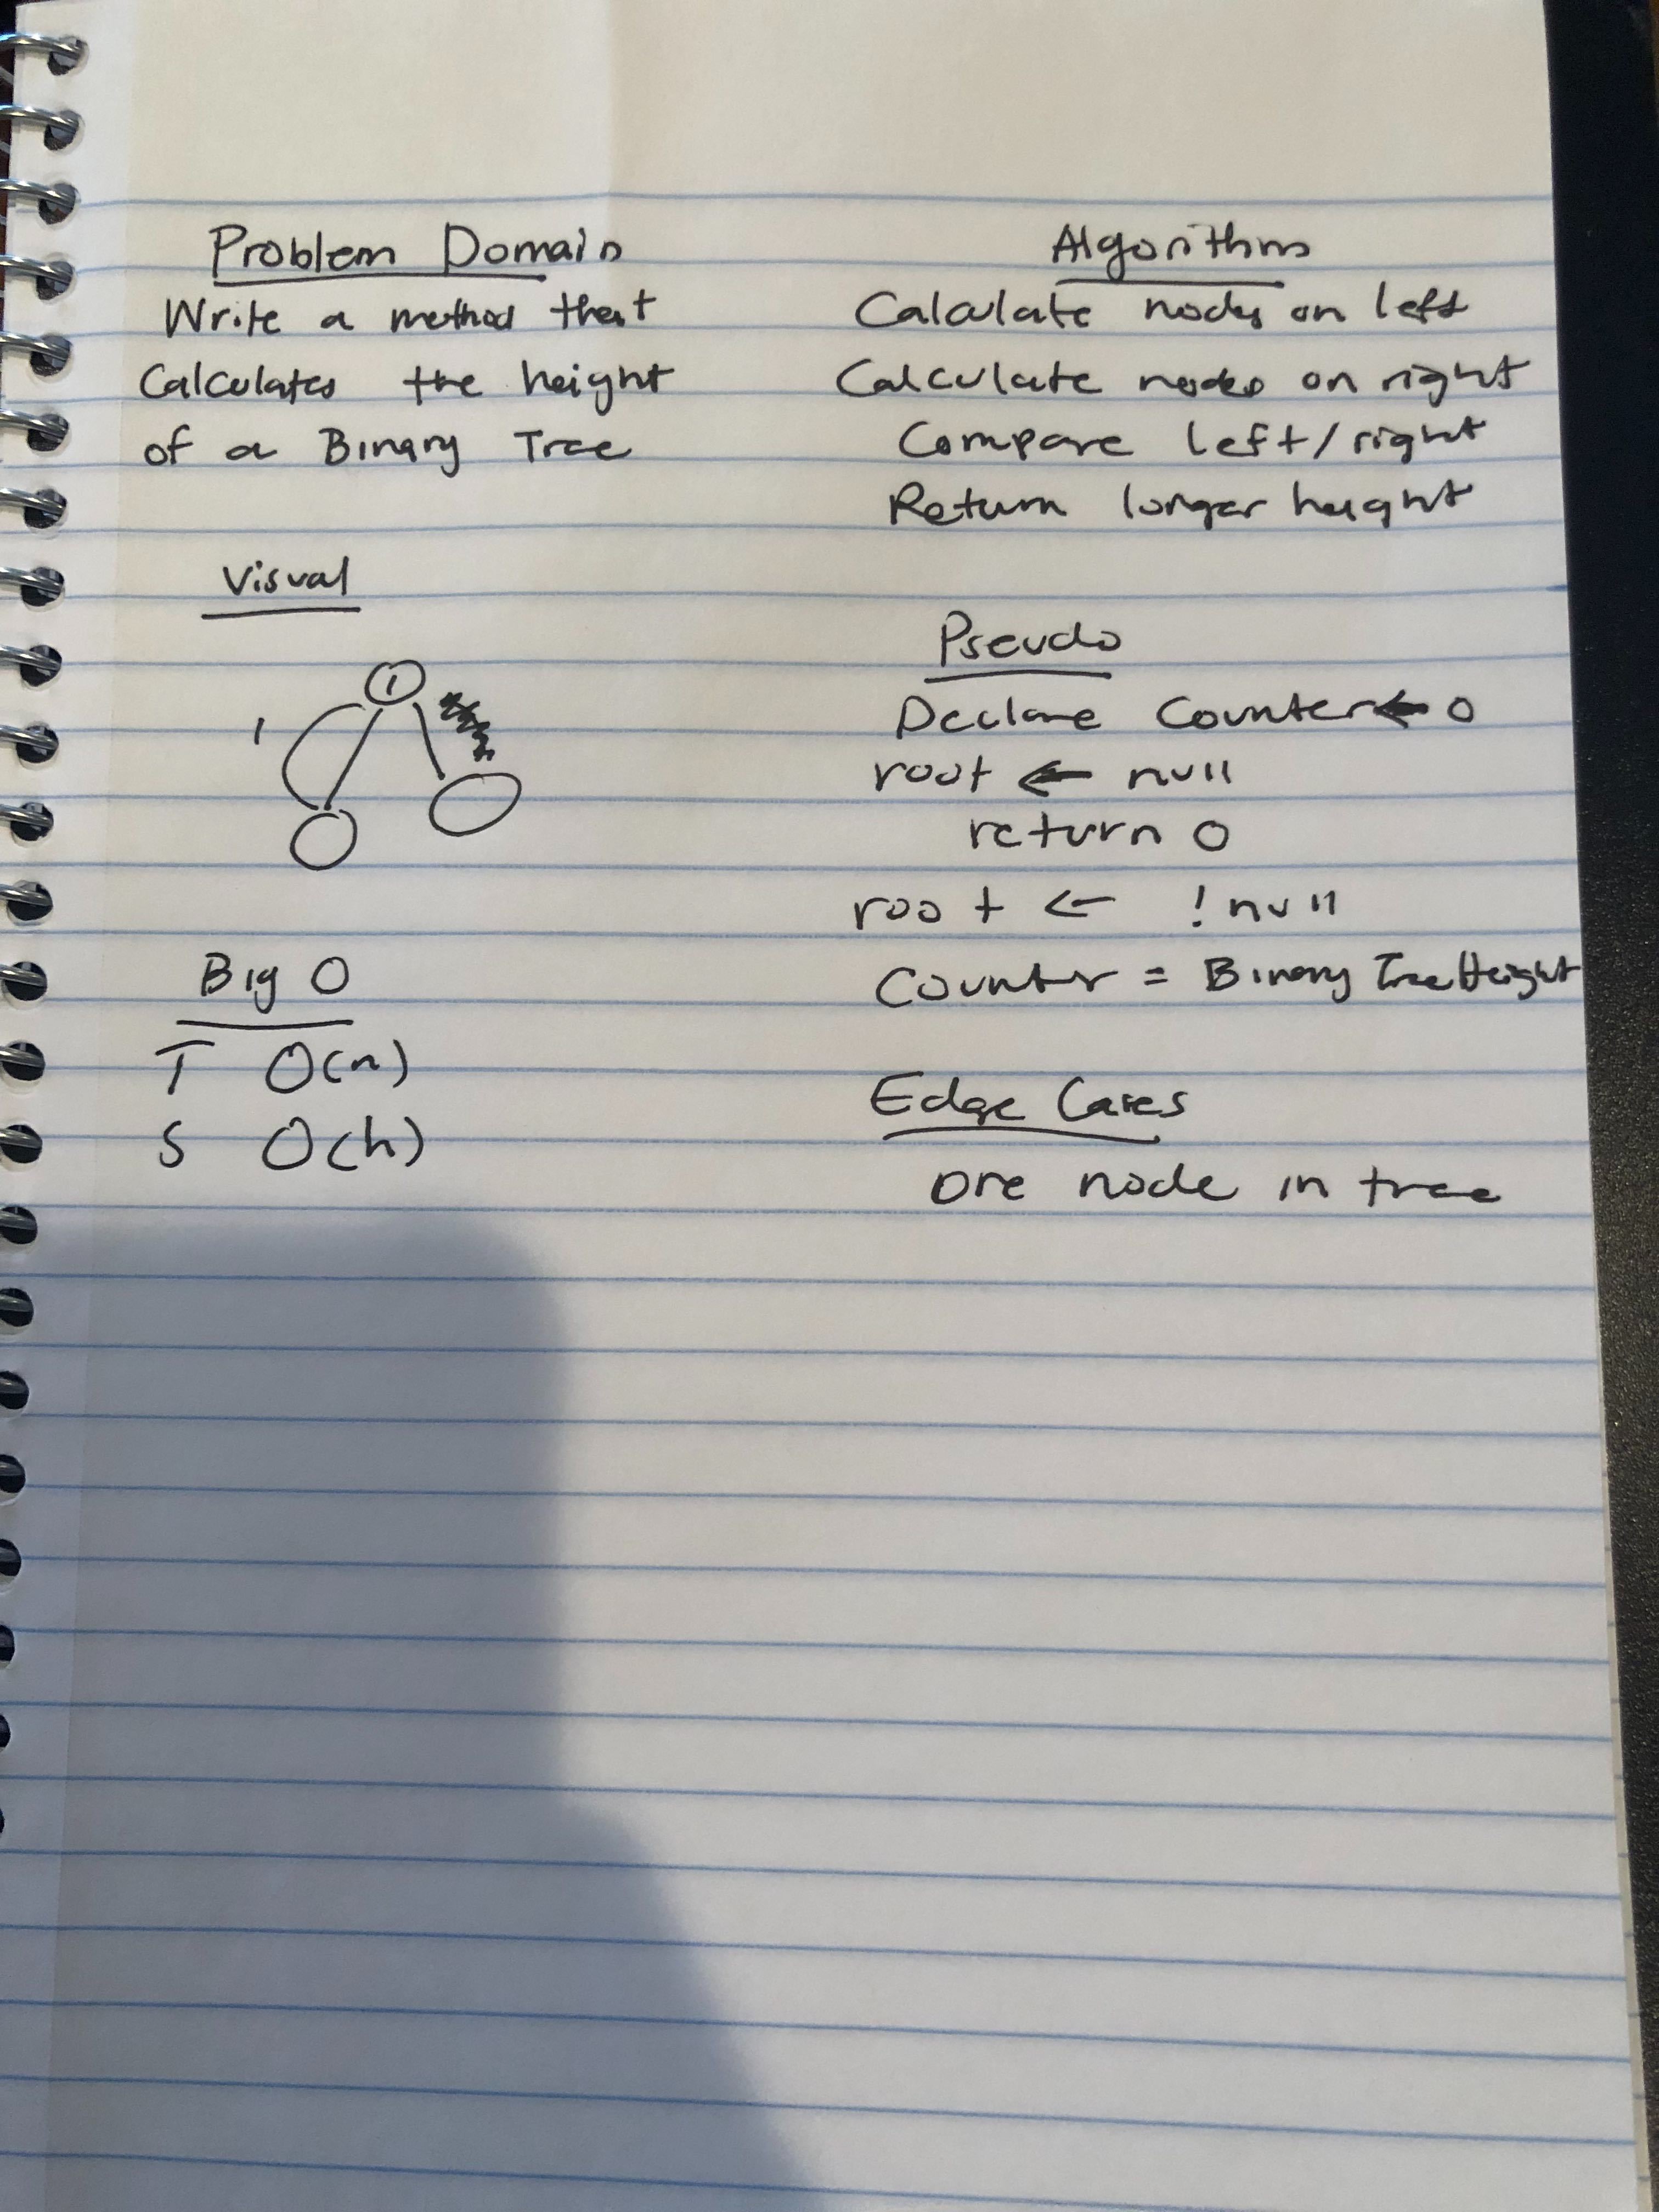 Problem Domain
Write a method that
Calculates the height
of a Binary Tree
Visual
1
1
Big O
T O(n)
S O(h)
Algorithm
Calculate nodes on left
Calculate nodes on right
Compare left/right
Return longer height
Pseudo
Declare Counter ← 0
root ← null
return 0
root ← !null
Counter = Binary TreeHeight
Edge Cases
One node in tree